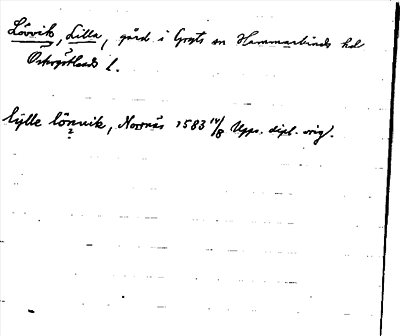 Lövvik, Lilla, gård i Gryts sn Hammarkinds hd
Östergötlands l.
lille lönnvik, Norrnäs 1583 14/8 Upps. dipl. orig.
?